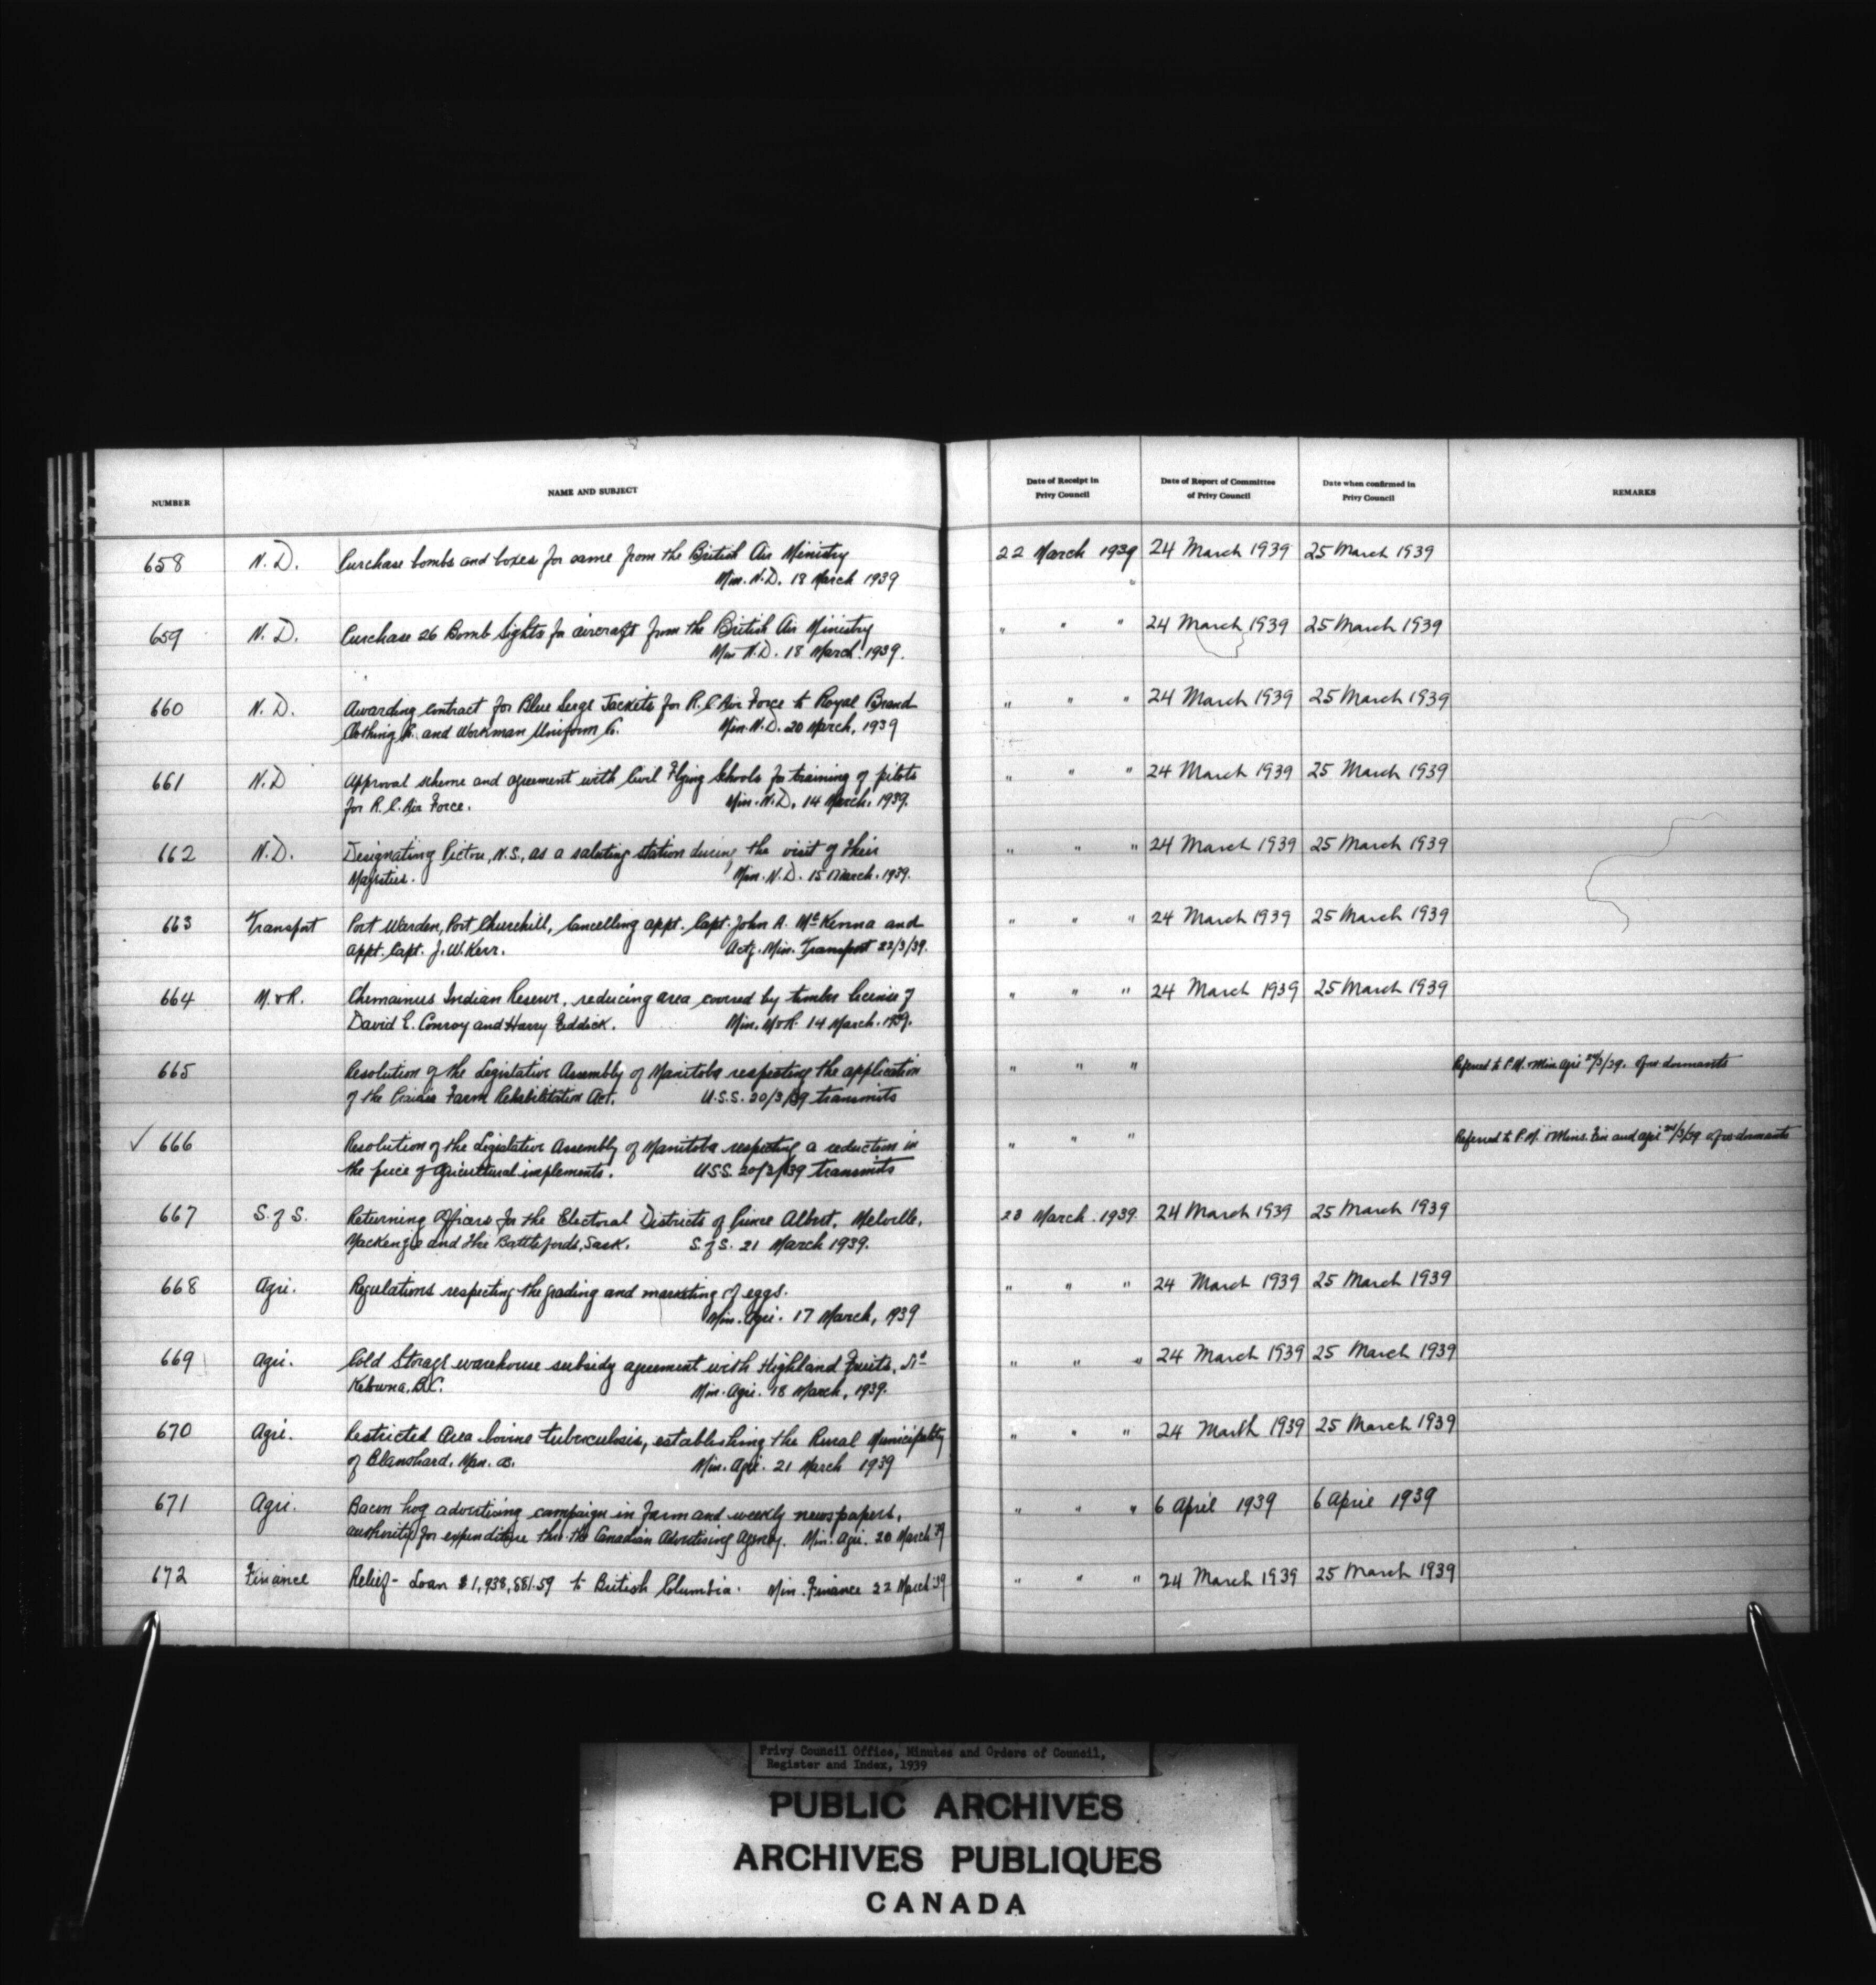 NUMBER NAME AND SUBJECT Date of Receipt in Privy Council Date of Report of Committee of Privy Council Date when confirmed in Privy Council REMARKS
658 N.D. Purchase bombs and boxes for same from the British Air Ministry 22 March 1939 24 March 1939 25 March 1939
Min. N.D. 18 March 1939 "
659 N.D. Purchase 26 Bomb Sights for aircraft from the British Air Ministry " " " 24 March 1939 25 March 1939
Min N.D. 18 March. 1939.
660 N.D. Awarding contract for Blue Serge Jackets for R.C. Air Force to Royal Brand " " " 24 March 1939 25 March 1939
Clothing Co. and Workman Uniform Co. Min. N.D. 20 March, 1939
661 N.D Approval scheme and agreement with Civil Flying Schools for training of pilots " " " 24 March 1939 25 March 1939
for R.C. Air Force. Min. N.D. 14 March. 1939.
662 N.D. Designating Pictou, N.S., as a saluting station during the visit of Their " " " 24 March 1939 25 March 1939
Majesties. Min. N.D. 15 March. 1939.
663 Transport Port Warden, Port Churchill, Cancelling appt. Capt. John A. McKenna and " " " 24 March 1939 25 March 1939
appt. Capt. J.W. Kerr. Actg. Min. Transport 22/3/39.
664 M.&R. Chemainus Indian Reserve, reducing area covered by timber license of " " " 24 March 1939 25 March 1939
David E. Conroy and Harry Fiddick. Min. M&R. 14 March. 1939.
665 Resolution of the Legislative Assembly of Manitoba respecting the application " " " Referred to P.M. & Min. Agri 24/3/39.
of the Prairie Farm Rehabilitation Act. U.S.S. 20/3/39 transmits
✓ 666 Resolution of the Legislative Assembly of Manitoba respecting a reduction in " " " Referred to P.M. & Mins. Fin and Agri 24/3/39
the price of agricultural implements. USS. 20/3/39 transmits
667 S. of S. Returning Officers for the Electoral Districts of Prince Albert, Melville, 23 March. 1939. 24 March 1939 25 March 1939
Mackenzie and The Battlefords, Sask. S. of S. 21 March 1939.
668 Agri. Regulations respecting the grading and marketing of eggs. " " " 24 March 1939 25 March 1939
Min. Agri. 17 March, 1939
669 Agri. Cold Storage warehouse subsidy agreement with Highland Fruits, " " " 24 March 1939 25 March 1939
Kelowna, B.C. Min. Agri. 18 March, 1939.
670 Agri. Restricted Area bovine tuberculosis, establishing the Rural Municipality " " " 24 March 1939 25 March 1939
of Blanshard, Man. as. Min. Agri. 21 March 1939
671 Agri. Bacon hog advertising campaign in farm and weekly newspapers, " " " 6 April 1939 6 April 1939
authority for expenditure thro. the Canadian Advertising Agency. Min. Agri. 20 March '39
672 Finance Relief - Loan $1,938,881.59 to British Columbia. Min. Finance 22 March '39 " " " 24 March 1939 25 March 1939
Privy Council Office, Minutes and Orders of Council,
Register and Index, 1939
PUBLIC ARCHIVES
ARCHIVES PUBLIQUES
CANADA